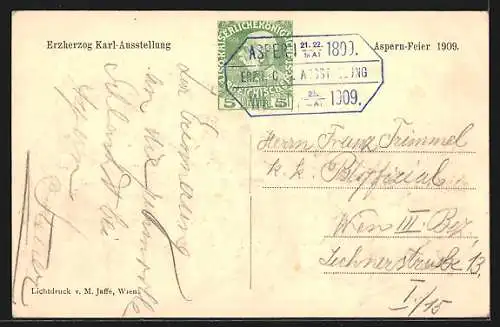 Erzherzog Karl-Ausstellung
Aspern-Feier 1909.
KAISERLICHE KÖNIGL
5 5
ASPERN 21. 22. MAI 1809.
ERZH. C. AUSSTELLUNG
WIEN MAI 1909.
Zur Erinnerung
an die
Schlacht bei
Aspern
Herrn Franz Trimmel
k. k. Offizial
Wien III. Bez.
Lechnerstraße 13
I./15
Lichtdruck v. M. Jaffé, Wien.